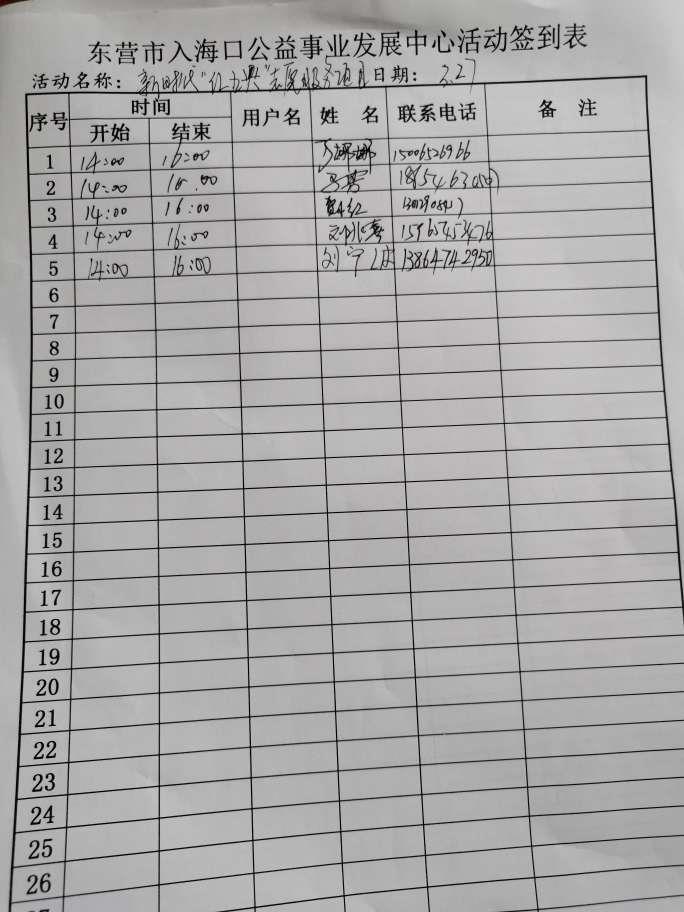 东营市入海口公益事业发展中心活动签到表
活动名称：新时代"红立兴"志愿服务项目 日期：3.27
序号 时间 用户名 姓 名 联系电话 备 注
开始 结束
1 14:00 16:00 15065526966
2 14:00 16:00
3 14:00 16:00
4 14:00 16:00 15965453476
5 14:00 16:00 刘宁 13864742950
6
7
8
9
10
11
12
13
14
15
16
17
18
19
20
21
22
23
24
25
26